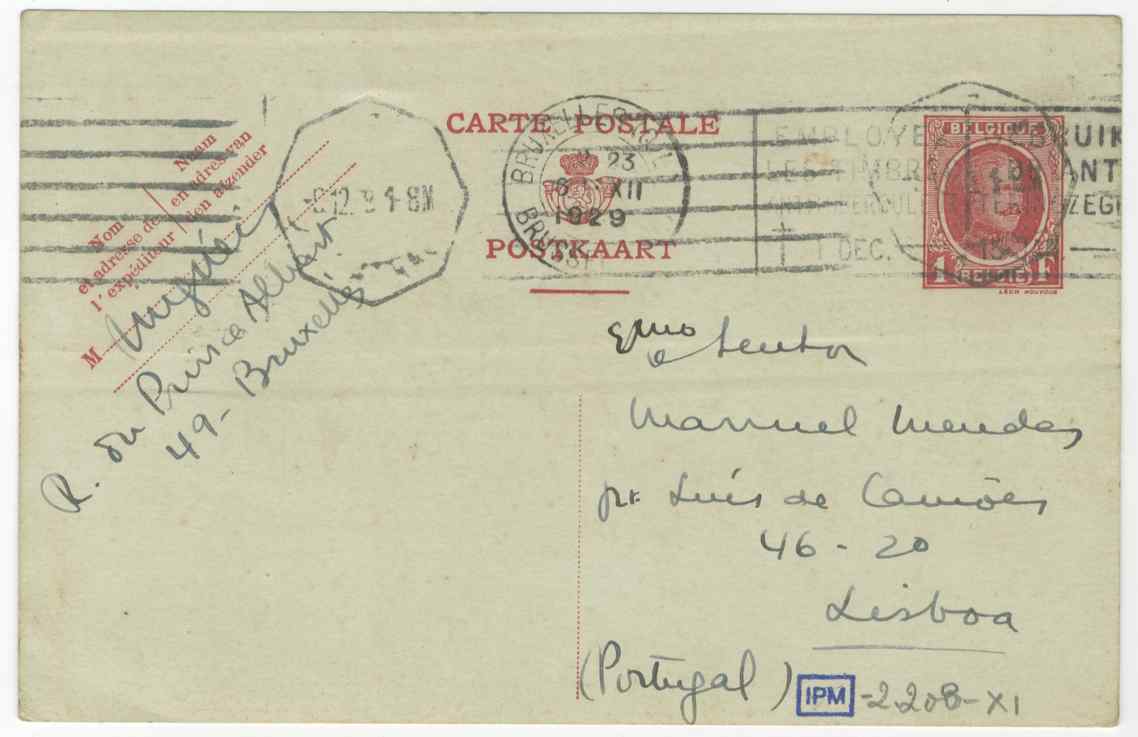 CARTE POSTALE
POSTKAART
BRUXELLES
23
8 XII
1929
BRUSSEL
8-12-9 4-8M
EMPLOYEZ
LES TIMBR
ANTITUBERCUL
1 DEC.
BRUIK
DE ANT
ZEGE
BELGIQUE
1 F
BELGIË
Nom
et adresse de
l'expéditeur
Naam
en adres van
den afzender
M
R. du Prince Albert
49 - Bruxelles
Exmo
Senhor
Manuel Mendes
Luís de Camões
46 - 20
Lisboa
(Portugal)
IPM -2.208-XI